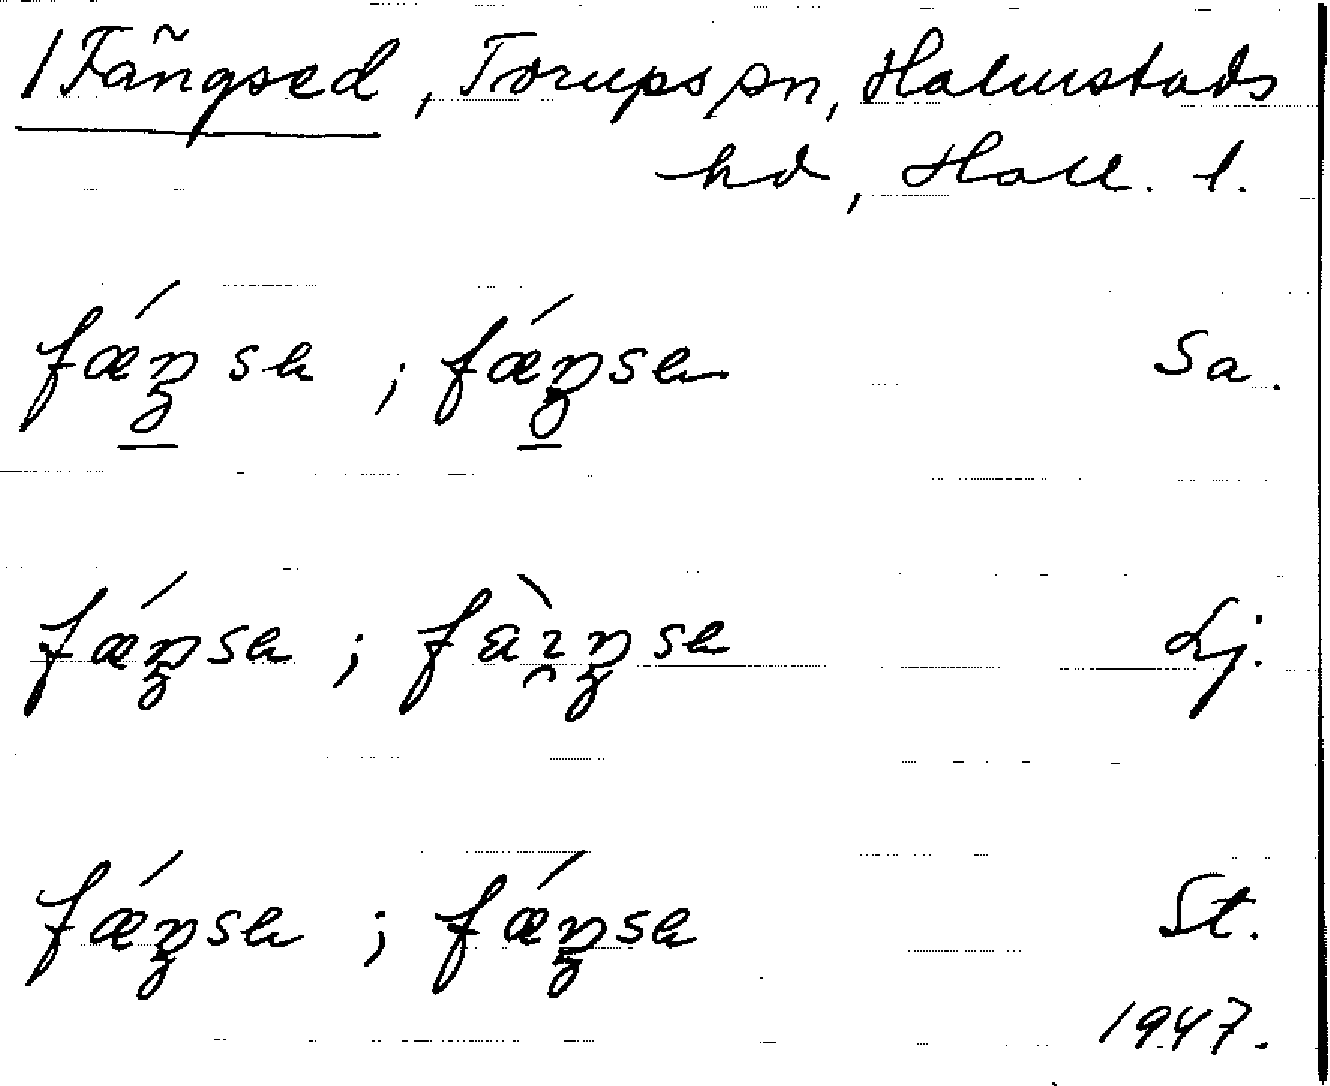 /Fängsed, Torups sn, Halmstads
hd, Hall. l.
fǽŋse ; fǽŋse Sa.
fǽŋse ; Lj.
fǽŋse ; fǽŋse St.
1947.